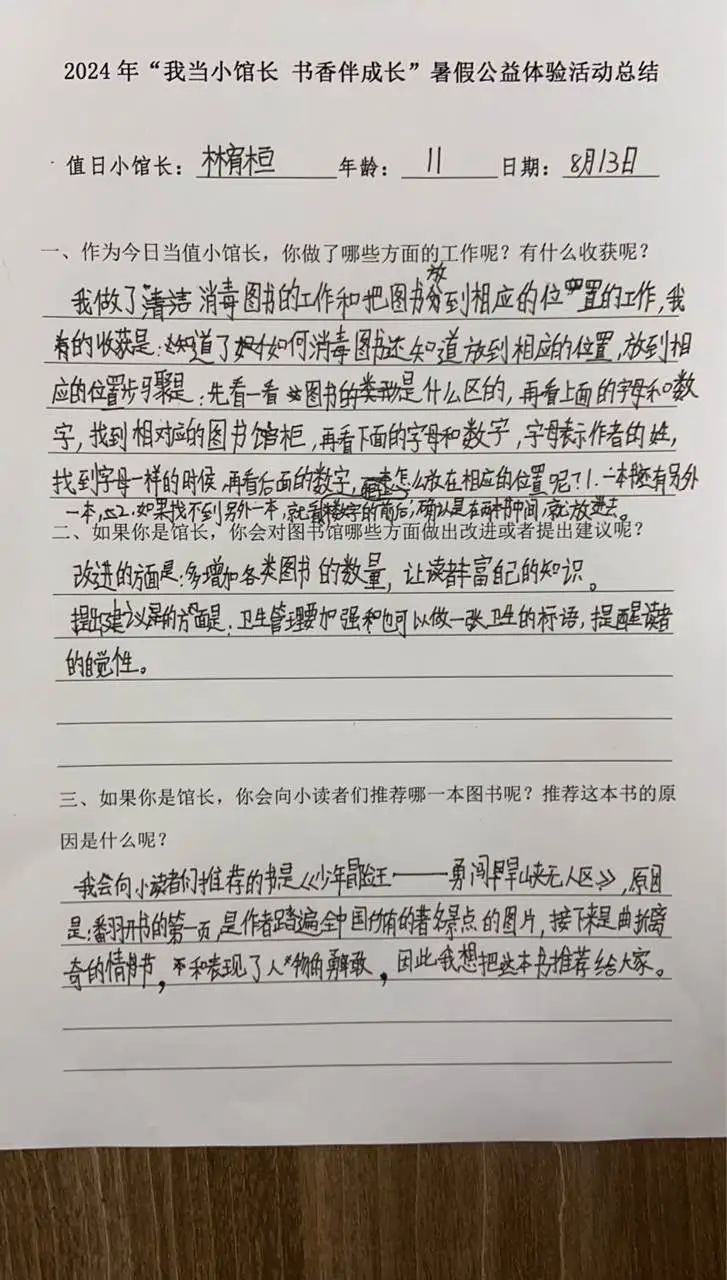 2024年“我当小馆长 书香伴成长”暑假公益体验活动总结
值日小馆长：林宥桓 年龄：11 日期：8月13日
一、作为今日当值小馆长，你做了哪些方面的工作呢？有什么收获呢？
我做了清洁消毒图书的工作和把图书放到相应的位置的工作，我
有的收获是：知道了如何消毒图书还知道放到相应的位置，放到相
应的位置步骤是：先看一看图书的类形是什么区的，再看上面的字母和数
字，找到相对应的图书馆柜，再看下面的字母和数字，字母表示作者的姓，
找到字母一样的时候，再看后面的数字，怎么放在相应的位置呢？1.一本书还有另外
一本，2.如果找不到另外一本，就看数字的前后，确认是在两本书中间，就放进去。
二、如果你是馆长，你会对图书馆哪些方面做出改进或者提出建议呢？
改进的方面是：多增加各类图书的数量，让读者丰富自己的知识。
提出建议的方面是：卫生管理要加强和也可以做一张卫生的标语，提醒读者
的自觉性。
三、如果你是馆长，你会向小读者们推荐哪一本图书呢？推荐这本书的原
因是什么呢？
我会向小读者们推荐的书是《少年冒险王——勇闯旱山峡无人区》，原因
是：翻开书的第一页，是作者踏遍全中国所有的著名景点的图片，接下来是曲折离
奇的情节，和表现了人物的勇敢，因此我想把这本书推荐给大家。